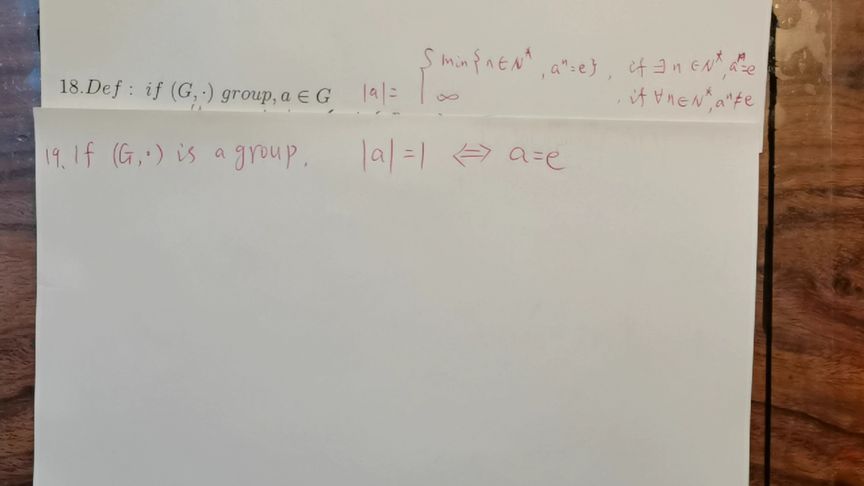 18.Def : if (G,·) group, a ∈ G |a|= { min{n∈N*, aⁿ=e}, if ∃ n ∈N*, aⁿ=e
∞ , if ∀n∈N*, aⁿ≠e
19. If (G,·) is a group. |a|=1 ⟺ a=e